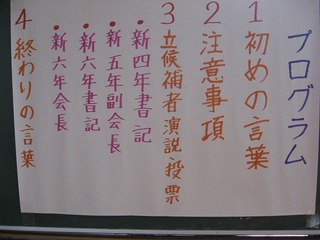 プログラム
1 初めの言葉
2 注意事項
3 立候補者演説・投票
・新四年書記
・新五年副会長
・新六年書記
・新六年会長
4 終わりの言葉